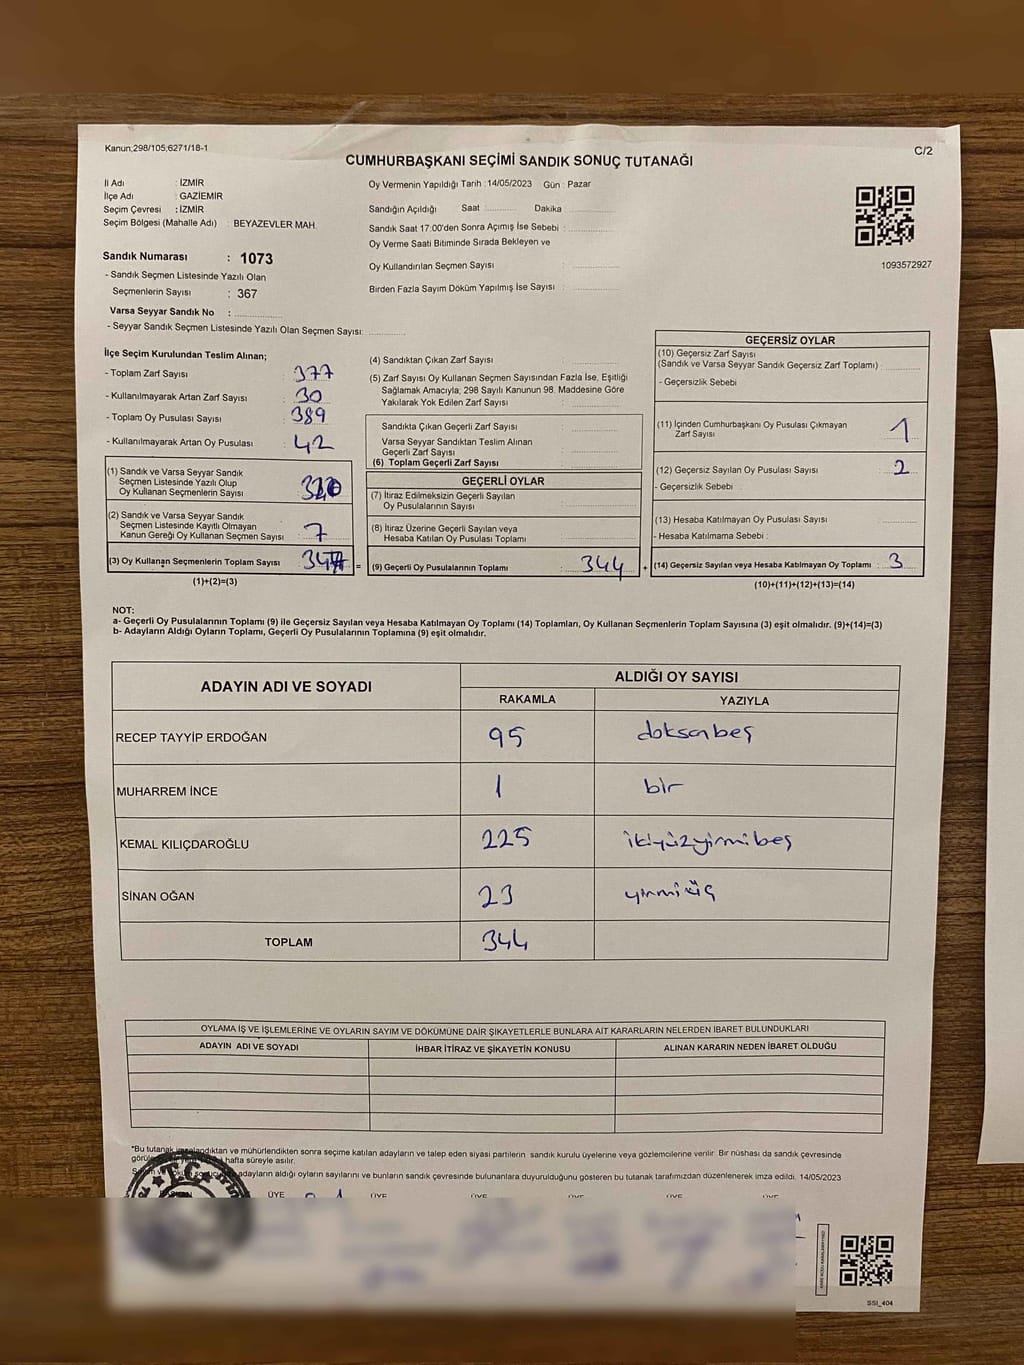 Kanun,298/105,6271/18-1
C/2
CUMHURBAŞKANI SEÇİMİ SANDIK SONUÇ TUTANAĞI
İl Adı : İZMİR
İlçe Adı : GAZİEMİR
Seçim Çevresi : İZMİR
Seçim Bölgesi (Mahalle Adı) : BEYAZEVLER MAH.
Oy Vermenin Yapıldığı Tarih : 14/05/2023 Gün : Pazar
Sandığın Açıldığı Saat Dakika
Sandık Saat 17:00'den Sonra Açımış İse Sebebi :
Oy Verme Saati Bitiminde Sırada Bekleyen ve
Oy Kullandırılan Seçmen Sayısı :
Birden Fazla Sayım Döküm Yapılmış İse Sayısı :
1093572927
Sandık Numarası : 1073
- Sandık Seçmen Listesinde Yazılı Olan
Seçmenlerin Sayısı : 367
Varsa Seyyar Sandık No :
- Seyyar Sandık Seçmen Listesinde Yazılı Olan Seçmen Sayısı:
İlçe Seçim Kurulundan Teslim Alınan;
- Toplam Zarf Sayısı : 377
- Kullanılmayarak Artan Zarf Sayısı : 30
- Toplam Oy Pusulası Sayısı : 389
- Kullanılmayarak Artan Oy Pusulası : 42
(1) Sandık ve Varsa Seyyar Sandık
Seçmen Listesinde Yazılı Olup
Oy Kullanan Seçmenlerin Sayısı
(2) Sandık ve Varsa Seyyar Sandık
Seçmen Listesinde Kayıtlı Olmayan
Kanun Gereği Oy Kullanan Seçmen Sayısı : 7
(3) Oy Kullanan Seçmenlerin Toplam Sayısı : =
(1)+(2)=(3)
(4) Sandıktan Çıkan Zarf Sayısı :
(5) Zarf Sayısı Oy Kullanan Seçmen Sayısından Fazla İse, Eşitliği
Sağlamak Amacıyla; 298 Sayılı Kanunun 98. Maddesine Göre
Yakılarak Yok Edilen Zarf Sayısı :
Sandıkta Çıkan Geçerli Zarf Sayısı :
Varsa Seyyar Sandıktan Teslim Alınan
Geçerli Zarf Sayısı :
(6) Toplam Geçerli Zarf Sayısı :
GEÇERLİ OYLAR
(7) İtiraz Edilmeksizin Geçerli Sayılan
Oy Pusulalarının Sayısı :
(8) İtiraz Üzerine Geçerli Sayılan veya
Hesaba Katılan Oy Pusulası Toplamı :
(9) Geçerli Oy Pusulalarının Toplamı : 344 +
GEÇERSİZ OYLAR
(10) Geçersiz Zarf Sayısı
(Sandık ve Varsa Seyyar Sandık Geçersiz Zarf Toplamı) :
- Geçersizlik Sebebi
(11) İçinden Cumhurbaşkanı Oy Pusulası Çıkmayan
Zarf Sayısı : 1
(12) Geçersiz Sayılan Oy Pusulası Sayısı : 2
- Geçersizlik Sebebi
(13) Hesaba Katılmayan Oy Pusulası Sayısı :
- Hesaba Katılmama Sebebi :
(14) Geçersiz Sayılan veya Hesaba Katılmayan Oy Toplamı : 3
(10)+(11)+(12)+(13)=(14)
NOT:
a- Geçerli Oy Pusulalarının Toplamı (9) ile Geçersiz Sayılan veya Hesaba Katılmayan Oy Toplamı (14) Toplamları, Oy Kullanan Seçmenlerin Toplam Sayısına (3) eşit olmalıdır. (9)+(14)=(3)
b- Adayların Aldığı Oyların Toplamı, Geçerli Oy Pusulalarının Toplamına (9) eşit olmalıdır.
ADAYIN ADI VE SOYADI
ALDIĞI OY SAYISI
RAKAMLA YAZIYLA
RECEP TAYYİP ERDOĞAN 95 doksanbeş
MUHARREM İNCE 1 bir
KEMAL KILIÇDAROĞLU 225 ikiyüzyirmibeş
SİNAN OĞAN 23 yirmiüç
TOPLAM 344
OYLAMA İŞ VE İŞLEMLERİNE VE OYLARIN SAYIM VE DÖKÜMÜNE DAİR ŞİKAYETLERLE BUNLARA AİT KARARLARIN NELERDEN İBARET BULUNDUKLARI
ADAYIN ADI VE SOYADI İHBAR İTİRAZ VE ŞİKAYETİN KONUSU ALINAN KARARIN NEDEN İBARET OLDUĞU
*Bu tutanak imzalandıktan ve mühürlendikten sonra seçime katılan adayların ve talep eden siyasi partilerin sandık kurulu üyelerine veya gözlemcilerine verilir. Bir nüshası da sandık çevresinde
hafta süreyle asılır.
adayların aldığı oyların sayılarını ve bunların sandık çevresinde bulunanlara duyurulduğunu gösteren bu tutanak tarafımızdan düzenlenerek imza edildi. 14/05/2023
BAŞKAN ÜYE ÜYE ÜYE ÜYE ÜYE ÜYE
T.C.
SSI_404